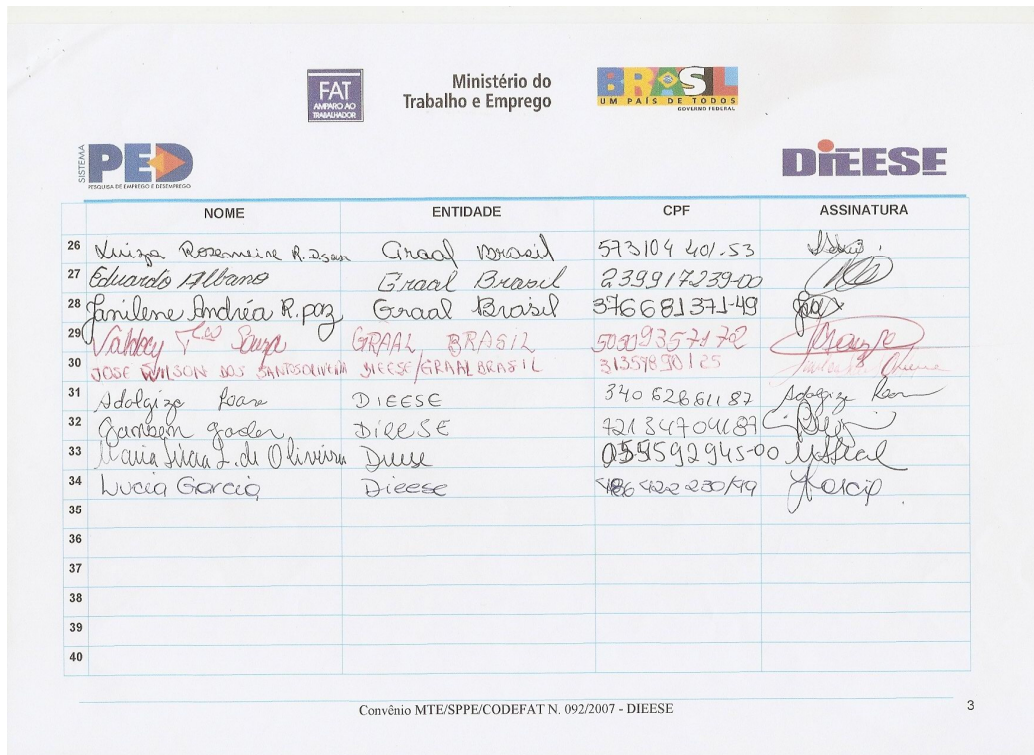 FAT
AMPARO AO
TRABALHADOR
Ministério do
Trabalho e Emprego
BRASIL
UM PAÍS DE TODOS
GOVERNO FEDERAL
SISTEMA
PED
PESQUISA DE EMPREGO E DESEMPREGO
DIEESE
NOME ENTIDADE CPF ASSINATURA
26 Luiza Rosemeire R. Graal Brasil 573104 401.53
27 Eduardo Albano Graal Brasil 239917239-00
28 Janilene Andréa R. paz Graal Brasil 376681371-49
29 Souza GRAAL BRASIL 50509357172
30 JOSE WILSON DOS SANTOS OLIVEIRA DIEESE/GRAAL BRASIL
31 Adalgiza DIEESE 340 626611 87 Adalgiza
32 DIEESE
33 Maria Lúcia L. de Oliveira Dieese
34 Lucia Garcia Dieese 486 422 230/49 Garcia
35
36
37
38
39
40
Convênio MTE/SPPE/CODEFAT N. 092/2007 - DIEESE
3